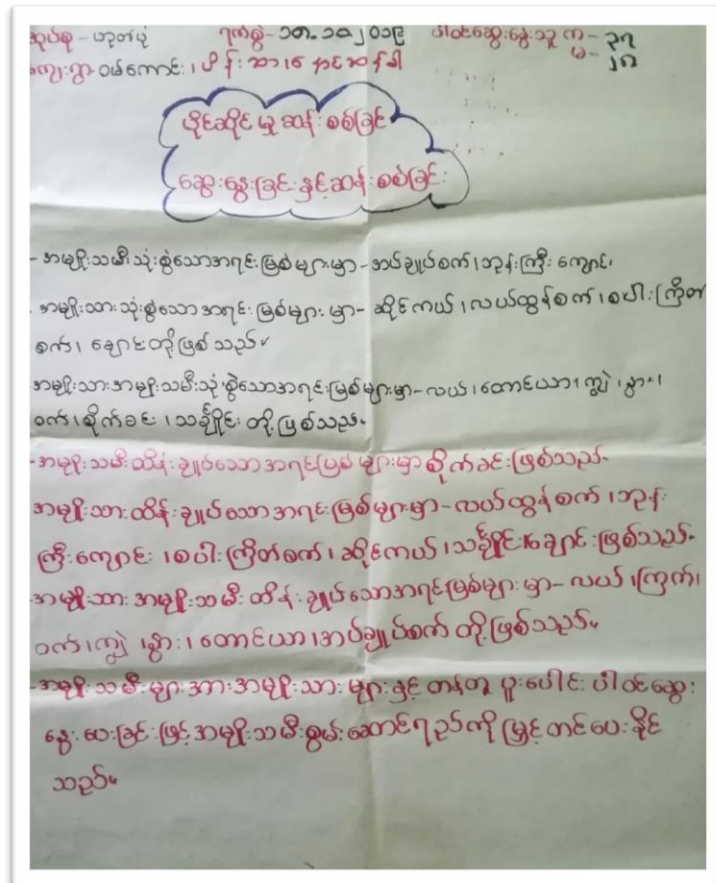 အုပ်စု - ဟုတ်ပုံ ရက်စွဲ - ၁၈.၁၁.၂၀၁၉ ပါဝင်ဆွေးနွေးသူ ကျ - ၃၇
မ - ၂၈
ကျေးရွာ
ပိုင်ဆိုင်မှုဆန်းစစ်ခြင်း
ဆွေးနွေးခြင်းနှင့်ဆန်းစစ်ခြင်း
- အမျိုးသမီးသုံးစွဲသောအရင်းမြစ်များမှာ - အပ်ချုပ်စက်၊ ဘုန်းကြီးကျောင်း၊
- အမျိုးသားသုံးစွဲသောအရင်းမြစ်များမှာ - ဆိုင်ကယ်၊ လယ်ထွန်စက်၊ စပါးကြိတ်
စက်၊ ချောင်းတို့ဖြစ်သည်။
အမျိုးသားအမျိုးသမီးသုံးစွဲသောအရင်းမြစ်များမှာ - လယ်၊ တောင်ယာ၊ ကျွဲ၊ နွား၊
ဝက်၊ စိုက်ခင်း၊ သင်္ချိုင်းတို့ဖြစ်သည်။
- အမျိုးသမီးထိန်းချုပ်သောအရင်းမြစ်များမှာ စိုက်ခင်းဖြစ်သည်။
အမျိုးသားထိန်းချုပ်သောအရင်းမြစ်များမှာ - လယ်ထွန်စက်၊ ဘုန်း
ကြီးကျောင်း၊ စပါးကြိတ်စက်၊ ဆိုင်ကယ်၊ သင်္ချိုင်း၊ ချောင်းဖြစ်သည်။
- အမျိုးသား အမျိုးသမီးထိန်းချုပ်သောအရင်းမြစ်များမှာ - လယ်၊ ကြက်၊
ဝက်၊ ကျွဲ၊ နွား၊ တောင်ယာ၊ အပ်ချုပ်စက်တို့ဖြစ်သည်။
- အမျိုးသမီးများအားအမျိုးသားများနှင့် တန်တူ ပူးပေါင်းပါဝင်ဆွေး
နွေးပေးခြင်းဖြင့်အမျိုးသမီးစွမ်းဆောင်ရည်ကိုမြှင့်တင်ပေးနိုင်
သည်။